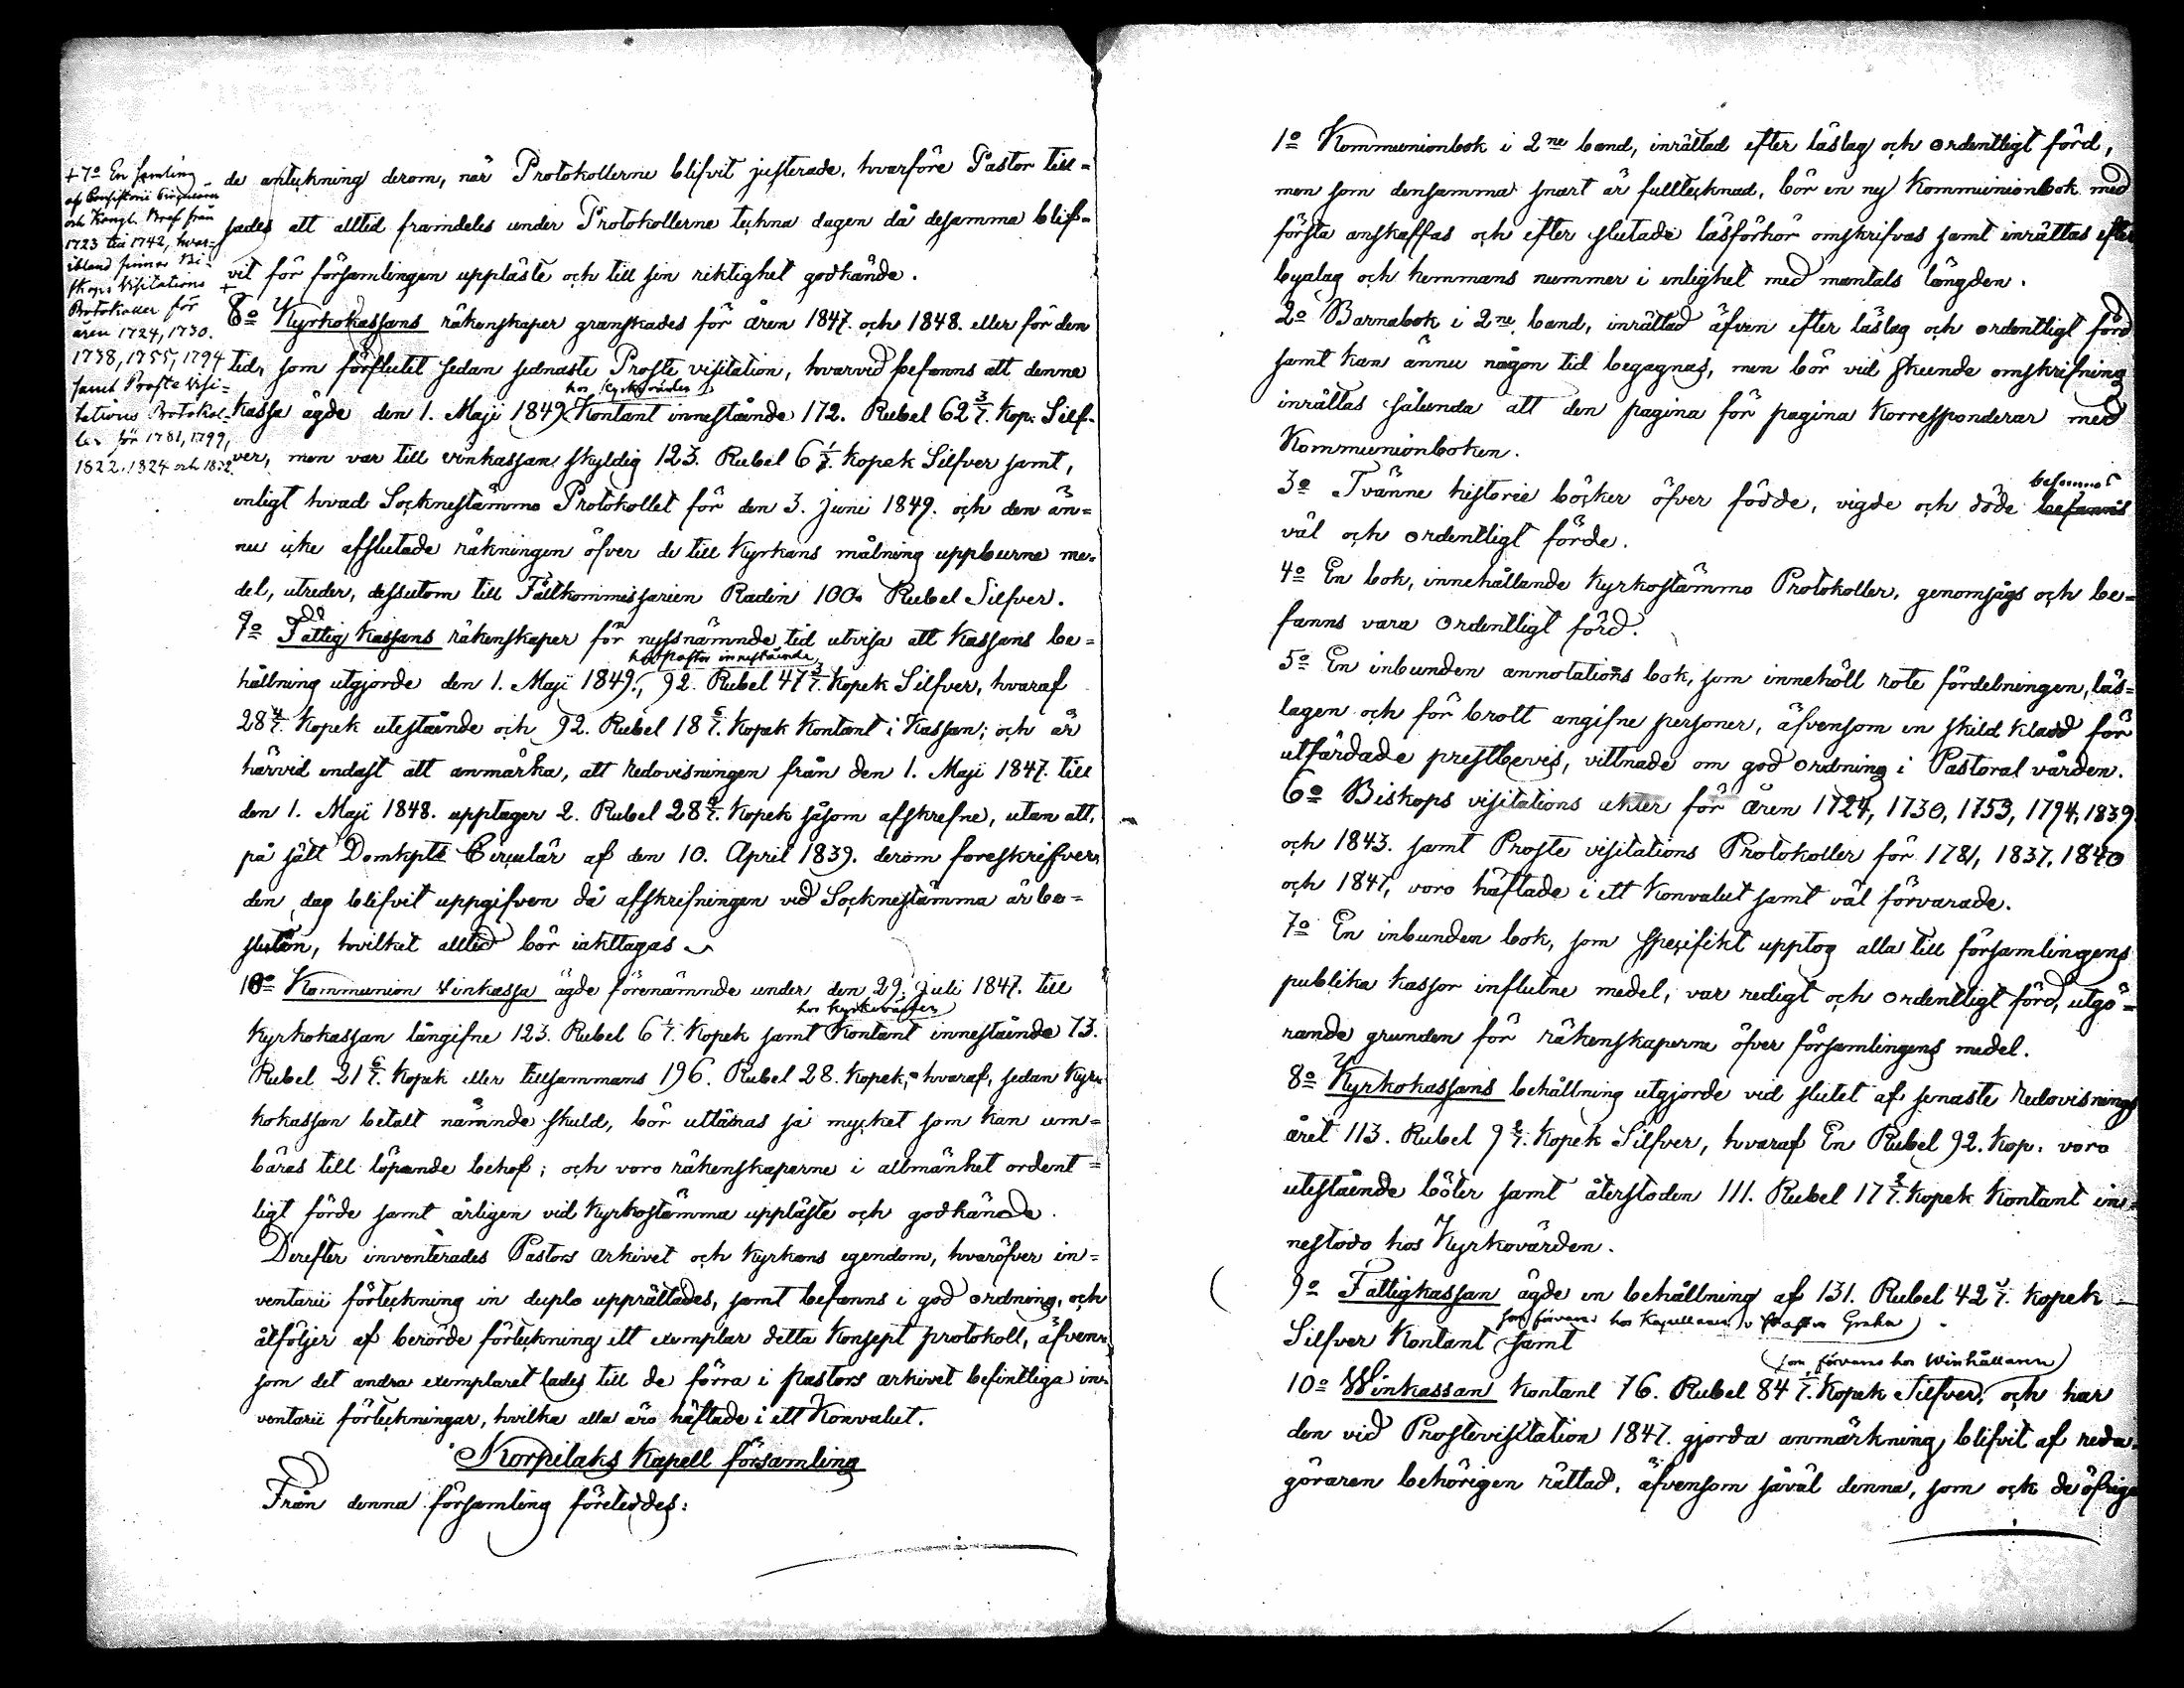 + 7o En samling
af Consistorii Circulairer
och Kongl. Bref från
1723 till 1742, hvar-
ibland finnas Bi-
skops Visitations
Protokoller för
åren 1724, 1730.
1738, 1755, 1794
samt Proste Visi-
tations Protokol-
ler för 1781, 1799,
1822, 1824 och 1832.
de anteckning derom, när Protokollerne blifvit justerade, hvarföre Pastor till-
sades att alltid framdeles under Protokollerne teckna dagen då desamma blif-
vit för församlingen uppläste och till sin riktighet godkände.
+
8o Kyrkokassans räkenskaper granskades för åren 1847. och 1848. eller för den
tid, som förflutit sedan sednaste Proste visitation, hvarvid befanns att denna
hos Kyrkovärden
kassa ägde den 1. Maji 1849. Kontant innestående 172. Rubel 62 3/7. Kop. Silf-
ver, men var till vinkassan skyldig 123. Rubel 6 1/7. Kopek Silfver samt,
enligt hvad Sockenstämmo Protokollet för den 3. Juni 1849. och den än-
nu icke afslutade räkningen öfver de till Kyrkans målning uppburne me-
del, utreder, dessutom till Fältkommissarien Radin 100. Rubel Silfver.
9o Fattig Kassans räkenskaper för nyssnämnde tid utvisa att Kassans be-
hos Pastor innestående
hållning utgjorde den 1. Maji 1849., 92. Rubel 47 3/7. Kopek Silfver, hvaraf
28 4/7. Kopek utestående och 92. Rubel 18 6/7. Kopek Kontant i Kassan; och är
härvid endast att anmärka, att redovisningen från den 1. Maji 1847. till
den 1. Maji 1848. upptager 2. Rubel 28 4/7. Kopek såsom afskrefne, utan att,
på sätt Domkplts Circulär af den 10. April 1839. derom foreskrifver,
den dag blifvit uppgifven då afskrifningen vid Sockenstämma är be-
sluten, hvilket alltid bör iakttagas
10o Kommunion Vinkassa ägde förenämnde under den 29. Juli 1847. till
hos Kyrkovärden
Kyrkokassan långifne 123. Rubel 6 1/7. Kopek samt Kontant innestående 73.
Rubel 21 6/7. Kopek eller tillsammans 196. Rubel 28. Kopek, hvaraf, sedan Kyr-
kokassan betalt nämnde skuld, bör utlånas så mycket som kan um-
bäras till löpande behof; och voro räkenskaperne i allmänhet ordent-
ligt förde samt årligen vid Kyrkostämma uppläste och godkände.
Derefter inventerades Pastors arkivet och Kyrkans egendom, hvaröfver in-
ventarii förteckning in duplo upprättades, samt befanns i god ordning, och
åtföljer af berörde förteckning ett exemplar detta Konsept protokoll, äfven-
som det andra exemplaret lades till de förra i pastors arkivet befintliga in-
ventarii förteckningar, hvilka alla äro häftade i ett Konvalut.
Korpilaks Kapell församling
Från denna församling företeddes:
1o Kommunionbok i 2ne band, inrättad efter läslag och ordentligt förd,
men som densamma snart är fulltecknad, bör en ny Kommunionbok med
första anskaffas och efter slutade läsförhör omskrifvas samt inrättas efter
byalag och hemmans nummer i enlighet med mantals längden.
2o Barnabok i 2ne band, inrättad äfven efter läslag och ordentligt förd
samt kan ännu någon tid begagnas, men bör vid skeende omskrifning
inrättas sålunda att den pagina för pagina Korresponderar med
Kommunionboken.
befunnos
3o Tvänne historie böcker öfver födde, vigde och döde befanns
väl och ordentligt förde.
4o En bok, innehållande Kyrkostämmo Protokoller, genomsågs och be-
fanns vara ordentligt förd.
5o En inbunden annotations bok, som innehöll rote fördelningen, läs-
lagen och för brott angifne personer, äfvensom en skild kladd för
utfärdade prestbevis, vittnade om god ordning i Pastoral vården.
6o Biskops visitations akter för åren 1724, 1730, 1753, 1794, 1839
och 1843. samt Proste visitations Protokoller för 1781, 1837, 1840
och 1847, voro häftade i ett Konvalut samt väl förvarade.
7o En inbunden bok, som specifikt upptog alla till församlingens
publika kassor influtne medel, var redigt och ordentligt förd, utgö-
rande grunden för räkenskaperne öfver församlingens medel.
8o Kyrkokassans behållning utgjorde vid slutet af senaste Redovisnings
året 113. Rubel 9 2/7. Kopek Silfver, hvaraf En Rubel 92. Kop. voro
utestående böter samt återstoden 111. Rubel 17 2/7. Kopek Kontant in-
nestodo hos Kyrkovärden.
9o Fattigkassan ägde en behållning af 131. Rubel 42 /7. Kopek
som förvaras hos Kapellanen
Silfver Kontant samt
som förvaras hos Winhållaren
10o Winkassan Kontant 76. Rubel 84 /7. Kopek Silfver, och har
den vid Prostevisitation 1847. gjorda anmärkning blifvit af redo-
göraren behörigen rättad, äfvensom såväl denna, som ock de öfriga